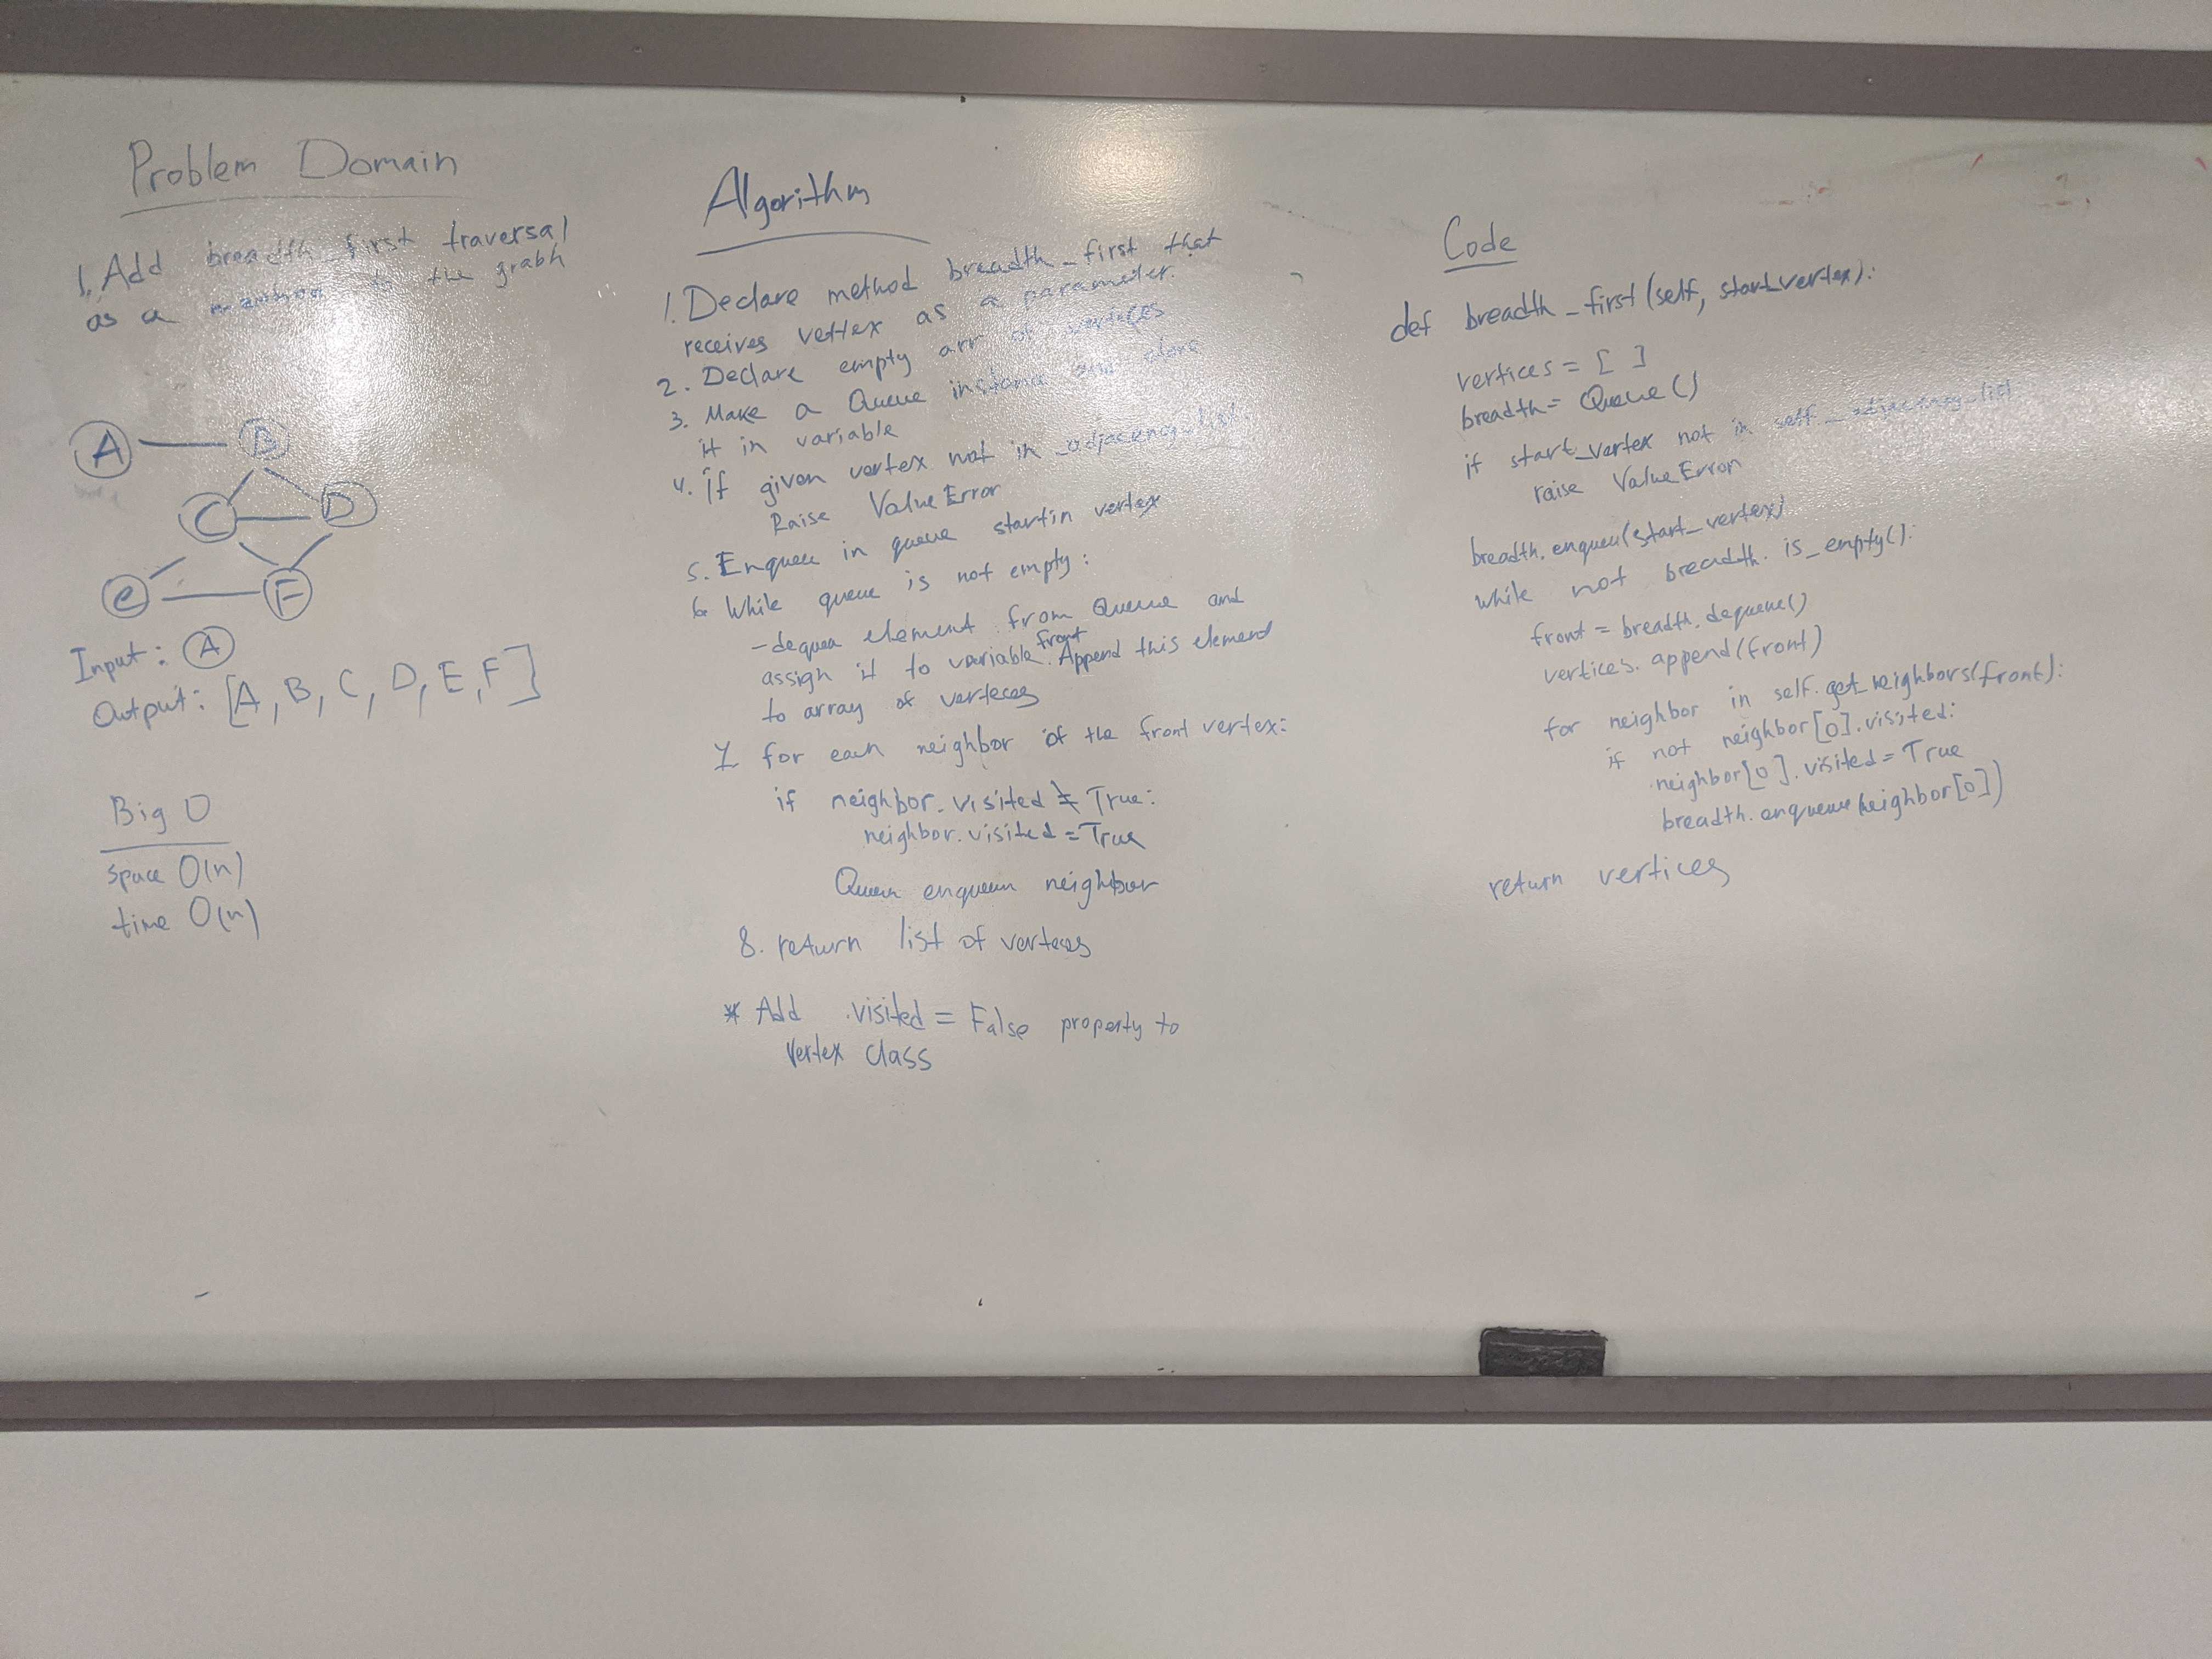 Problem Domain
1. Add breadth_first traversal
as a method to the graph
A
B
C
D
e
F
Input: A
Output: [A, B, C, D, E, F]
Big O
space O(n)
time O(n)
Algorithm
1. Declare method breadth_first that
receives vertex as a parameter.
2. Declare empty arr of vertices
3. Make a Queue instance and store
it in variable
4. if given vertex not in _adjacency_list:
Raise Value Error
5. Enqueu in queue startin vertex
6 While queue is not empty:
- dequeu element from Queue and
assign it to variable front. Append this element
to array of verteces
7 for each neighbor of the front vertex:
if neighbor.visited ≠ True:
neighbor.visited = True
Queue enqueue neighbor
8. return list of verteces
* Add .visited = False property to
Vertex class
Code
def breadth_first(self, start_vertex):
vertices = [ ]
breadth = Queue()
if start_vertex not in self._adjacency_list
raise Value Error
breadth.enqueu(start_vertex)
while not breadth.is_empty():
front = breadth.dequeue()
vertices.append(front)
for neighbor in self.get_neighbors(front):
if not neighbor[0].visited:
neighbor[0].visited = True
breadth.enqueue(neighbor[0])
return vertices